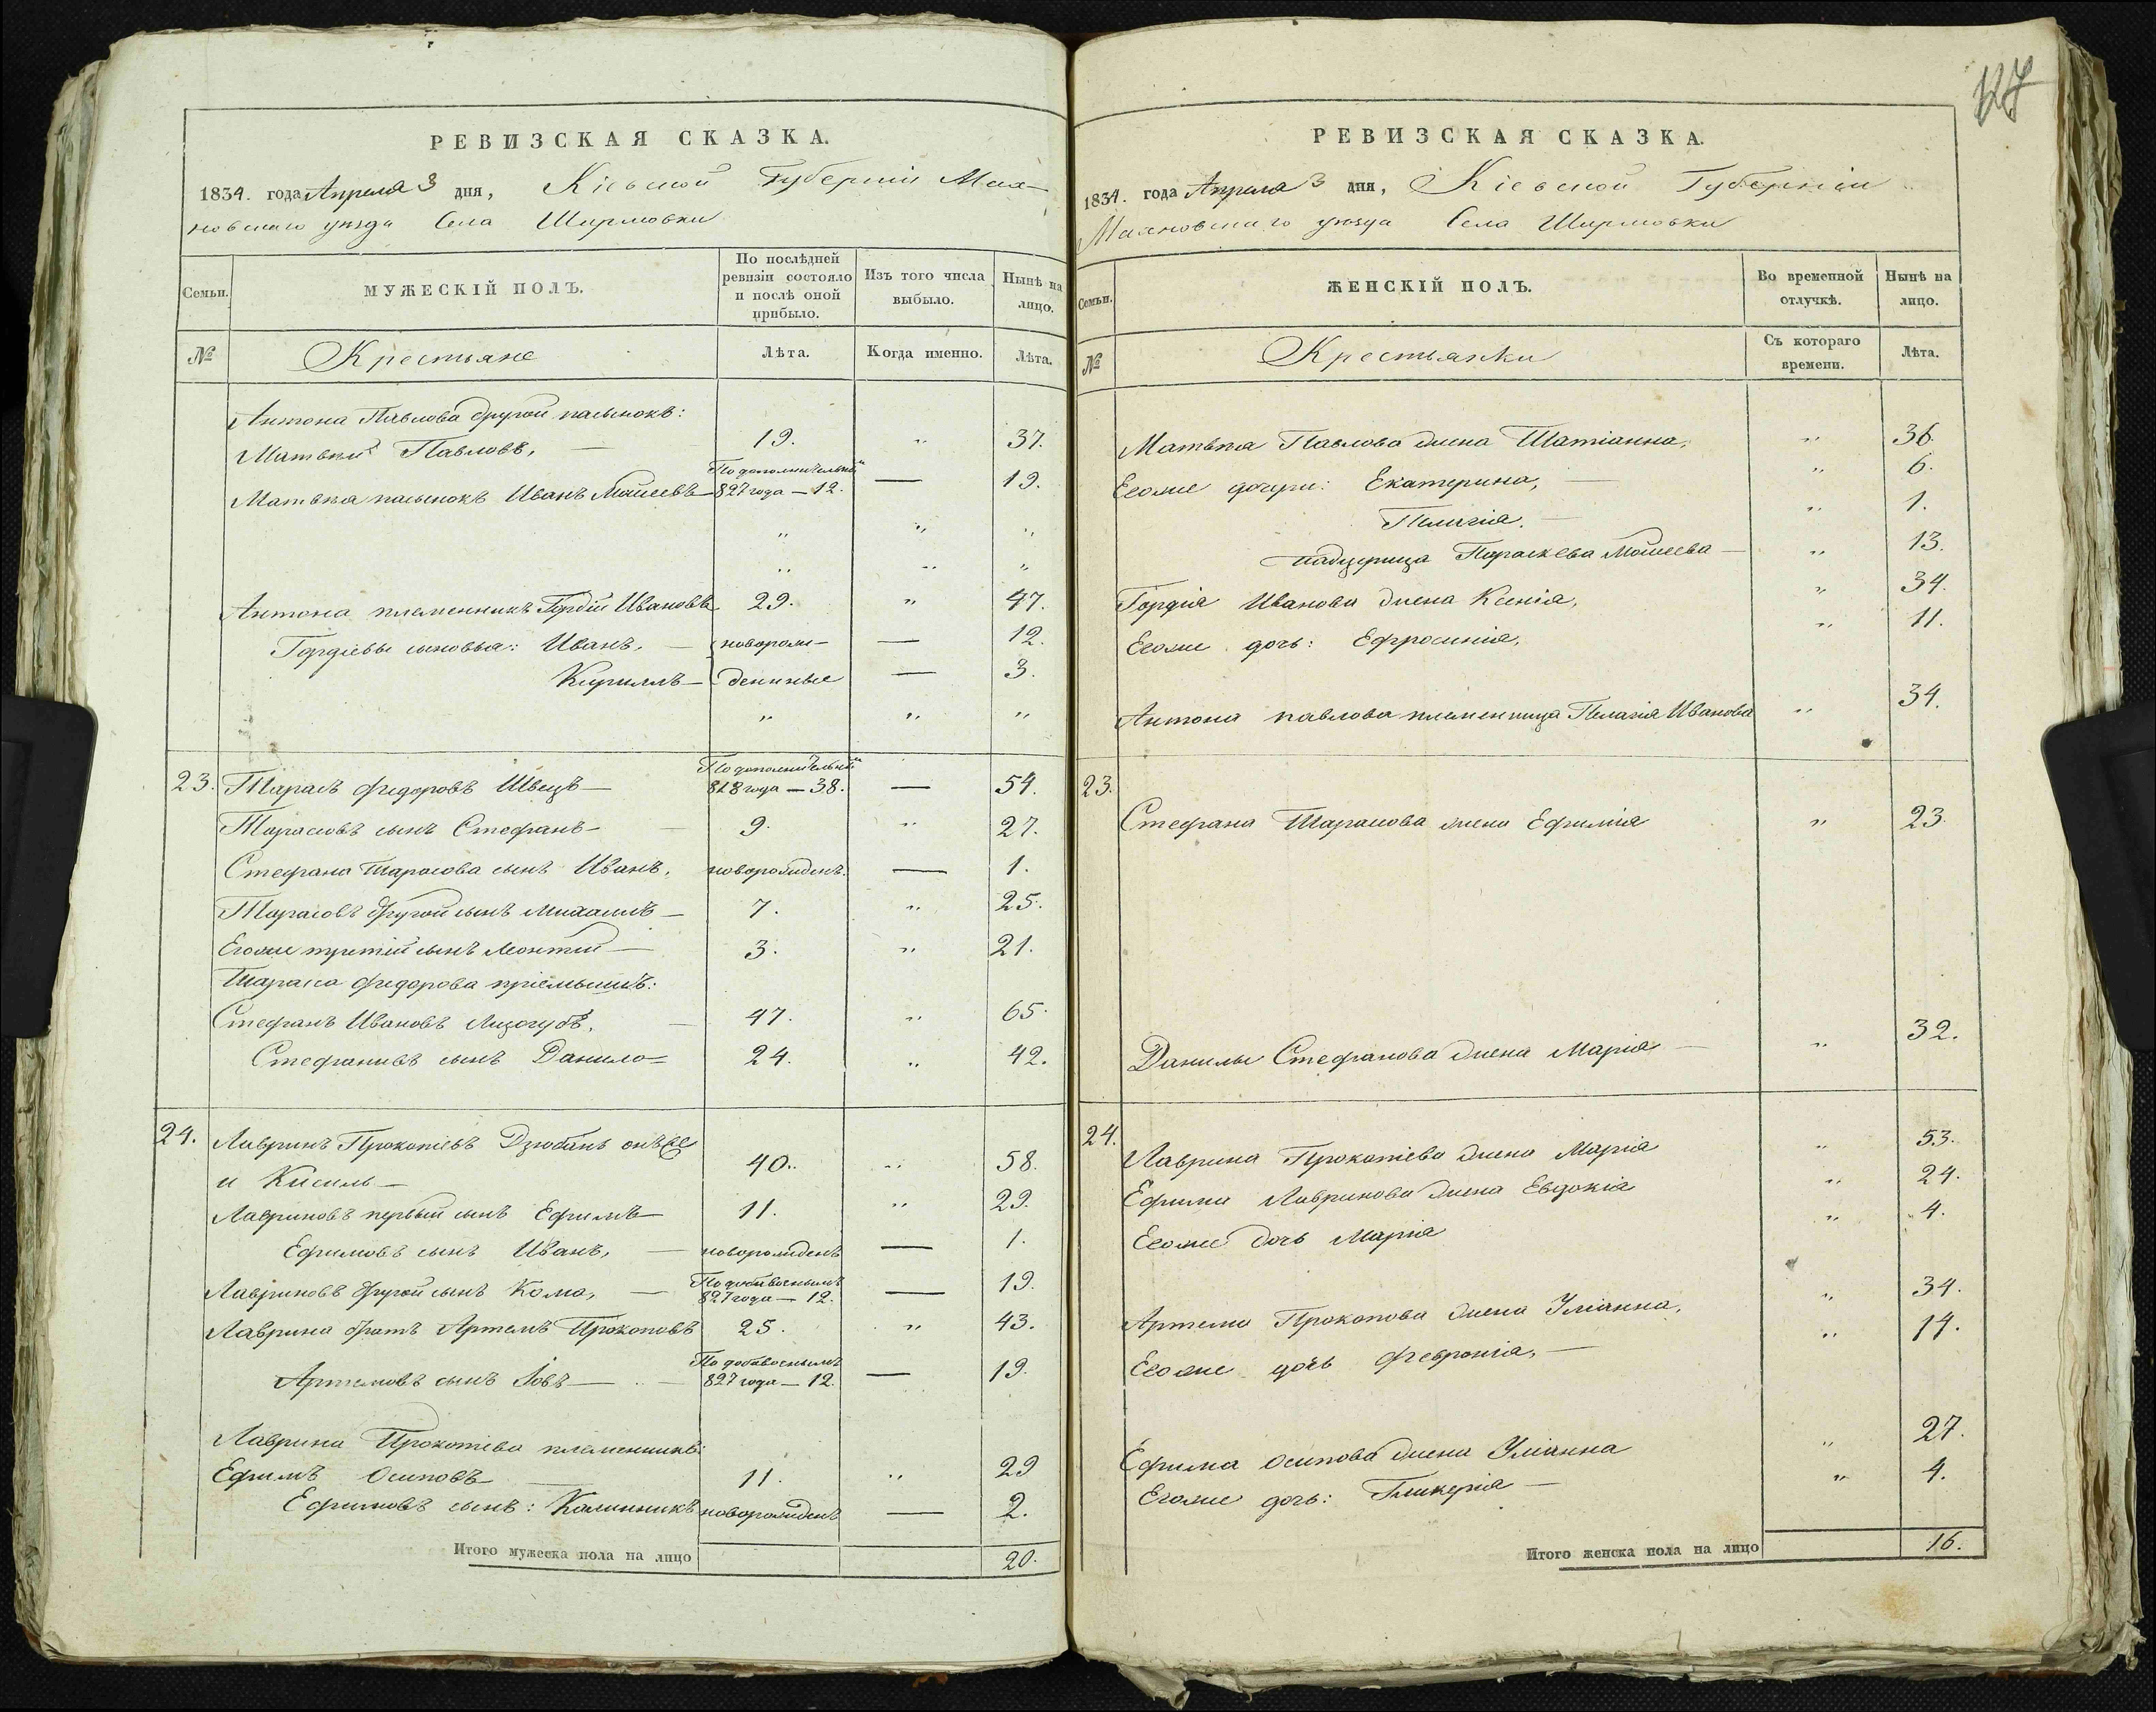 127
РЕВИЗСКАЯ СКАЗКА.
1834. года Апреля 3 дня, Кіевской Губерніи Мах-
новскаго уѣзда Села Ширмовки
Семьи.
МУЖЕСКІЙ ПОЛЪ.
По послѣдней ревизіи состояло и послѣ оной прибыло.
Изъ того числа выбыло.
Нынѣ на лицо.
№
Крестьяне
Лѣта.
Когда именно.
Лѣта.
Антона Павлова другой пасынокъ:
Матвѣй Павловъ, — 19. „ 37.
Матвѣя пасынокъ Иванъ Моисеевъ — По дополнительной 827 года — 12. — 19.
„ „ „
„ „ „
Антона племенникъ Гордій Ивановъ 29. „ 47.
Гордіевы сыновья: Иванъ, — новорож- — 12.
Кириллъ — денные — 3.
„ „ „
23. Тарасъ Федоровъ Швецъ — По дополнительной 818 года — 38. — 54.
Тарасовъ сынъ Стефанъ — 9. „ 27.
Стефана Тарасова сынъ Иванъ, новорожденъ. — 1.
Тарасовъ другой сынъ Михаилъ — 7. „ 25.
Егоже третій сынъ Леонтій — 3. „ 21.
Тараса Федорова пріемышъ:
Стефанъ Ивановъ Лизогубъ, — 47. „ 65.
Стефановъ сынъ Данило — 24. „ 42.
24. Лавринъ Прокопіевъ Дзюбанъ онъ же
и Кисиль — 40. „ 58.
Лавриновъ первый сынъ Ефимъ — 11. „ 29.
Ефимовъ сынъ Иванъ, — новорожденъ — 1.
Лавриновъ другой сынъ Кома, — По добавочнымъ 827 года — 12. — 19.
Лаврина братъ Артемъ Прокоповъ 25. „ 43.
Артемовъ сынъ Іовъ — По добавочнымъ 827 года — 12. — 19.
Лаврина Прокопіева племенникъ:
Ефимъ Осиповъ — 11. „ 29
Ефимовъ сынъ: Калинникъ новорожденъ — 2.
Итого мужеска пола на лицо 20.
РЕВИЗСКАЯ СКАЗКА.
1834. года Апреля 3 дня, Кіевской Губерніи
Махновскаго уѣзда Села Ширмовки
Семьи.
ЖЕНСКІЙ ПОЛЪ.
Во временной отлучкѣ.
Нынѣ на лицо.
№
Крестьянки
Съ котораго времени.
Лѣта.
Матвѣя Павлова жена Татіанна, „ 36.
Егоже дочери: Екатерина, — „ 6.
Пелагія. — „ 1.
падчерица Параскева Моисеева — „ 13.
Гордія Иванова жена Ксенія, „ 34.
Егоже дочь: Ефросинія, „ 11.
Антона павлова племенница Пелагія Иванова „ 34.
23.
Стефана Тарасова жена Ефимія „ 23.
Данилы Стефанова жена Марія — „ 32.
24.
Лаврина Прокопіева жена Марія „ 53.
Ефима Лавринова жена Евдокія „ 24.
Егоже дочь Марія „ 4.
Артема Прокопова жена Уліанна, „ 34.
Егоже дочь Февронія, — „ 14.
Ефима Осипова жена Уліанна „ 27.
Егоже дочь: Гликерія — „ 4.
Итого женска пола на лицо 16.